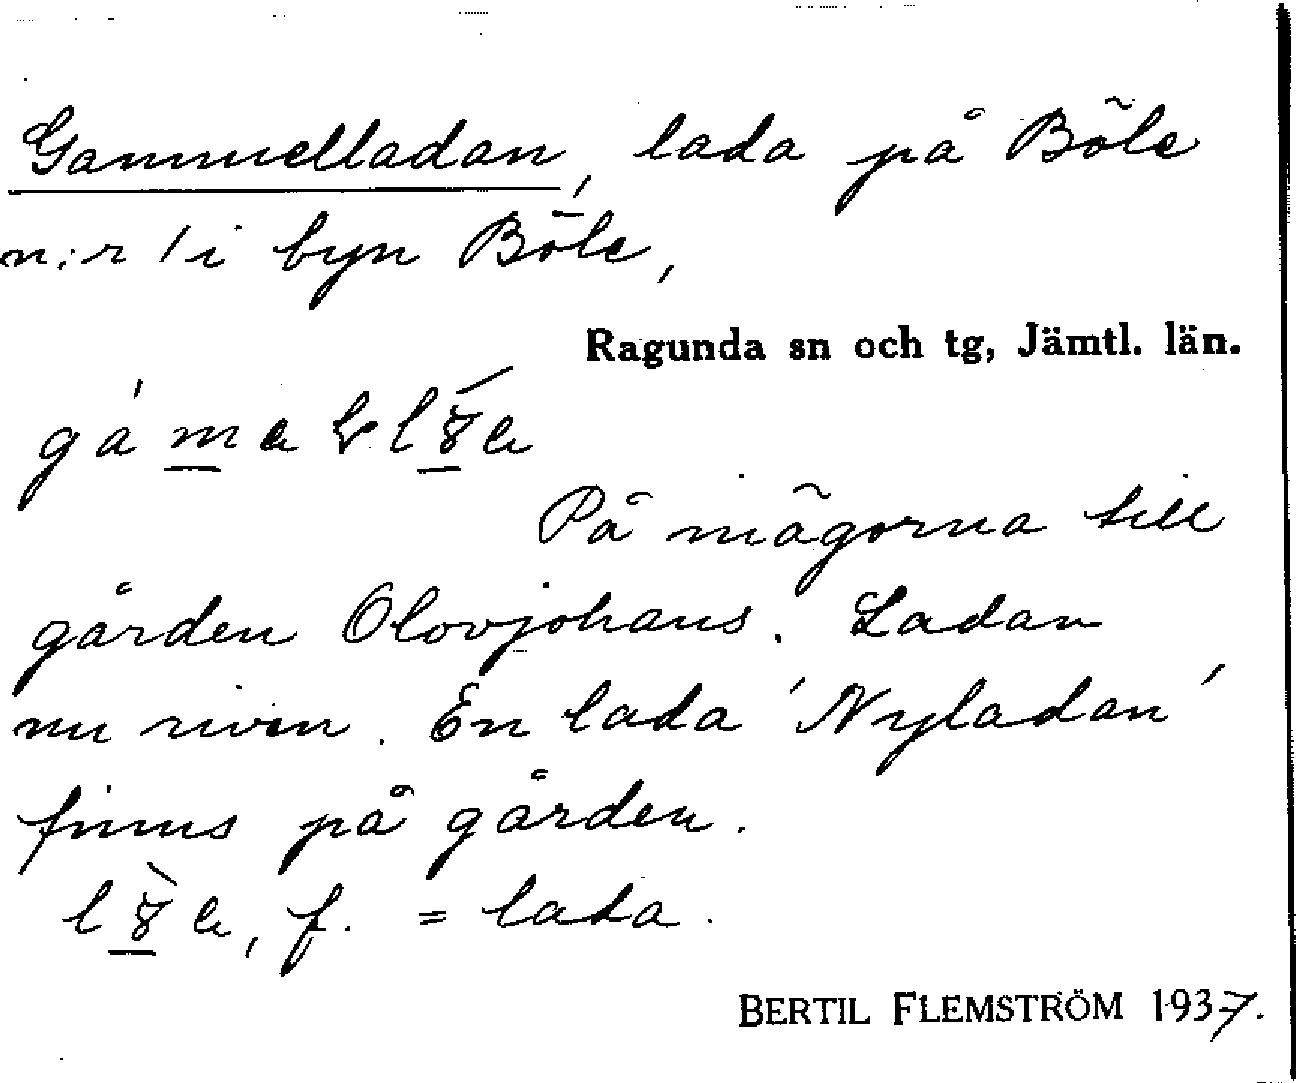 Gammelladan, lada på Böle
n:r 1 i byn Böle,
Ragunda sn och tg, Jämtl. län.
På mägorna till
gården Olovjohans. Ladan
nu riven. En lada 'Nyladan'
finns på gården.
f. = lada.
BERTIL FLEMSTRÖM 1937.